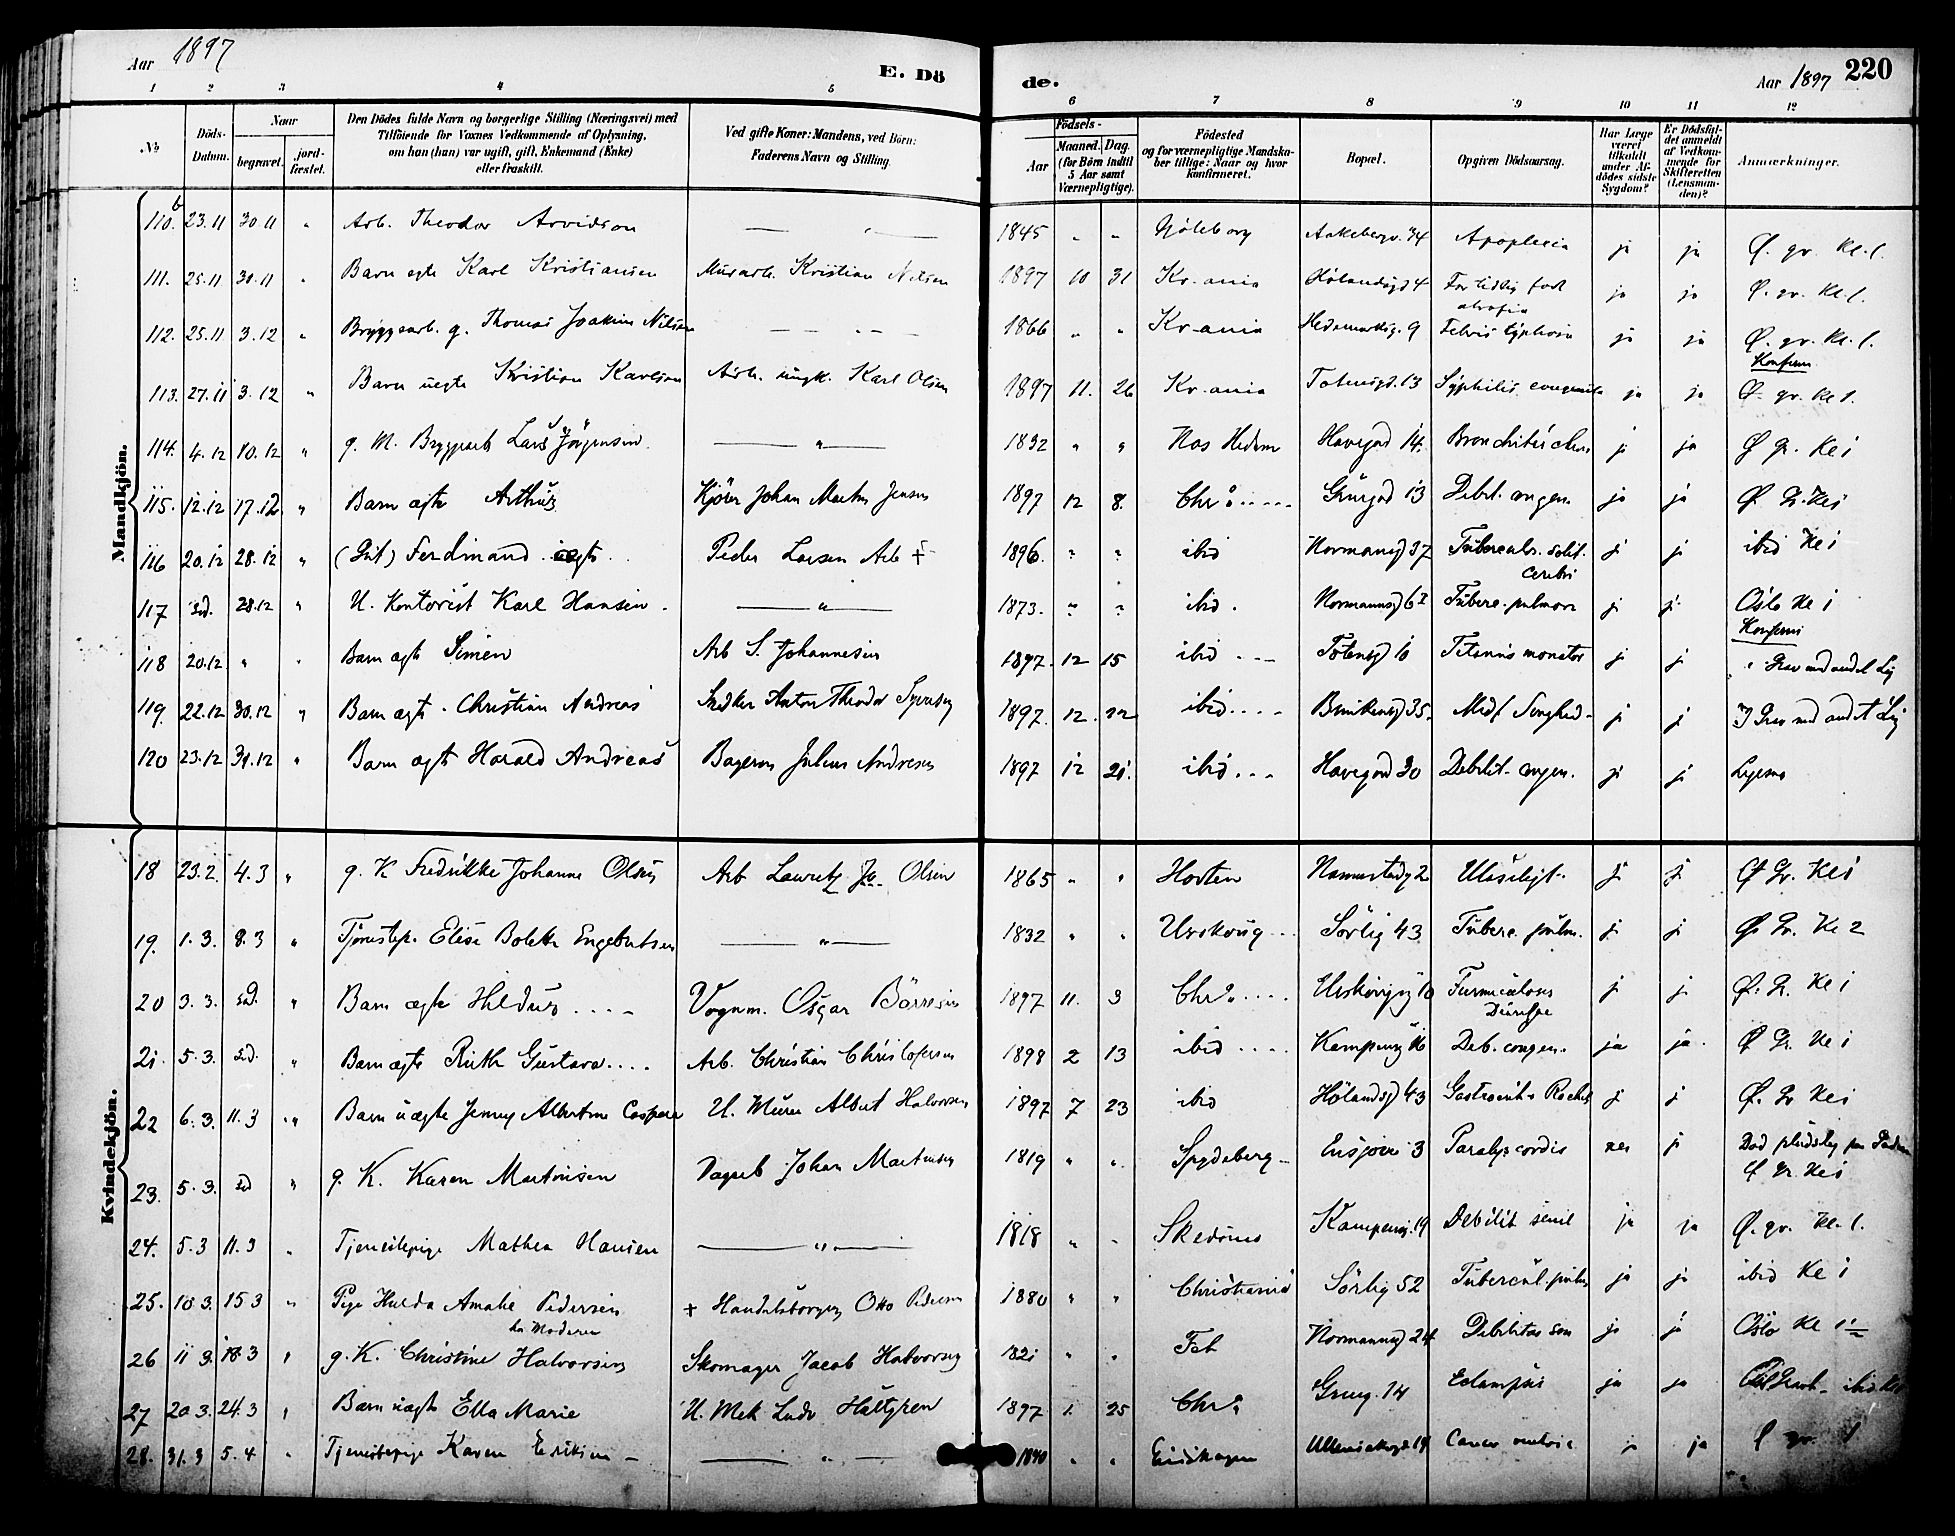 Aar 1897
E. Dö
de.
Aar 1897
220
1 2 3 4 5 6 7 8 9 10 11 12
No
Döds-Datum.
Naar
begravet.
jordfæstet.
Den Dödes fulde Navn og borgerlige Stilling (Næringsvei) med
Tilföiende for Voxnes Vedkommende af Oplysning,
om han (hun) var ugift, gift, Enkemand (Enke)
eller fraskilt.
Ved gifte Koner: Mandens, ved Börn:
Faderens Navn og Stilling.
Födsels-
Aar
Maaned. Dag.
(for Börn indtil
5 Aar samt
Værnepligtige).
Födested
og for værnepligtige Mandskaber tillige: Naar og hvor
konfirmeret.
Bopæl.
Opgiven Dödsaarsag.
Har Læge
været
tilkaldt
under Afdödes sidste
Sygdom?
Er Dödsfaldet anmeldt
af Vedkommende for
Skifteretten
(Lensmanden)?
Anmærkninger.
Mandkjön.
110.b 23.11 30.11 " Arb. Theodor Arvidson — " — 1845 " " Göteborg Aakebergv. 34 Apoplexia ja ja Ø. gr. kl. 1.
111. 25.11 30.11 " Barn egte Karl Kristiansen Murarb. Kristian Nilsen 1897 10 31 Kr.ania Hølandsgd 4 For tidlig født atrofia ja ja Ø. gr. kl. 1.
112. 25.11 3.12 " Bryggearb. g. Thomas Joakim Nilsen — " — 1866 " " Kr.ania Hedemarksg. 9 Febris typhosa ja ja Ø. gr. kl. 1. Konferer.
113. 27.11 3.12 " Barn uegte Kristian Karlsen Arb. ungk. Karl Olsen 1897 11. 26 Kr.ania Totensgd. 13 Syphilis congenita ja ja Ø. gr. kl 1.
114. 4.12 10.12 " g. M. Bryggearb Lars Jörgensen — " — 1832 " " Nes Hedem Havegad 14. Bronchitis chron j ja Ø Gr. Kl 1
115. 12.12 17.12 " Barn ægte Arthur Kjörer Johan Martin Jensen 1897 12 8. Chr a Grüngad 13 Debil. congen. ja ja Ø. Gr. Kl 1
116 20.12 28.12 " (Gut) Ferdinand ægte Peder Larsen Arb + 1896. " " ibid Normansg 37 Tubercul. solit. cerebri j j ibid Kl 1
117 sd. 28.12 " U. Kontorist Karl Hansen. — " — 1873. " " ibid. Normannsg 6 I Tuberc. pulmon j j Oslo Kl 1 Konferer
118 20.12 " " Barn ægte Simen Arb S. Johannesen 1897. 12 15 ibid Totensg 10 Tetanus j j i Grav med andet Lig
119. 22.12 30.12 " Barn ægte Christian Andreas Snedker Anton Theodor 1897. 12. 22 ibid 35. Medf j j I Grav med andet Lig
120 23.12 31.12 " Barn ægte Harald Andreas Bagersv Julius Andresen 1897 12 21. ibid Havegad 30 Debilit. congen. j j
Kvindekjön.
18 23.2. 4.3 " g. K Fredrikke Johanne Olsen Arb Lauretz Jo. Olsen 1865 " " Horten 2 j j Ø Gr. Kl 1
19. 1.3. 8.3 " Tjenestep. Elise Bolette Engebretsen — " — 1832 " " Urskoug Sörlig 43 Tuberc. pulm. j j Ø Gr. Kl 2
20 3.3. sd. " Barn ægte Hildur Vognm. Oscar Börresen 1897 11. 3 Chr a Urskougsg 10 Furunculosis Diarrhoe j j. Ø. Gr. Kl 1
21 5.3. sd. " Barn ægte Ruth Gustava Arb. Christian Christofersen 1898 2 13 ibid Kampensg 16 Deb. congen. ja ja Ø Gr Kl 1
22 6.3. 11.3 " Barn uægte Jenny Albertine Caspara U. Murer Albert Halvorsen 1897 7 23 ibid Hölandsg 43 Gastroent. Rachit j j Ø. Gr Kl 1
23. 5.3. sd " g. K. Karen Martinsen Dagarb Johan Martinsen 1819 " " Spydeberg Ensjövei 3 Paralys cordis nei j Död pludselig Ø Gr. Kl 1
24. 5.3 11.3 " Tjenestepige Mathea Hansen — " — 1818 " " Skedsmo Kampensg. 19 Debilit senil ja ja Ø. gr. Kl. 1.
25. 10.3. 15.3 " Pige Hulda Amalie Pedersen hos Moderen + Handelsborger Otto Pedersen 1880 " " Christiania Sörlig 52 Tubercul. pulm ja ja ibid Kl 1
26 11.3. 18.3 " g. K. Christine Halvorsen Skomager Jacob Halvorsen 1821 " " Fet Normannsg 24 Debilitas sen ja ja Oslo Kl 1
27 20.3. 24.3 " Barn uægte Ella Marie U. Mek Ludv Hultgren 1897 1. 25 Chr a Grüng. 14 Eclampsia ja ja
28. 31.3 5.4 " Tjenestepige Karen Eriksen — " — 1840 " " Eidskogen 19 Cancer ventric j ja Ø gr. 1